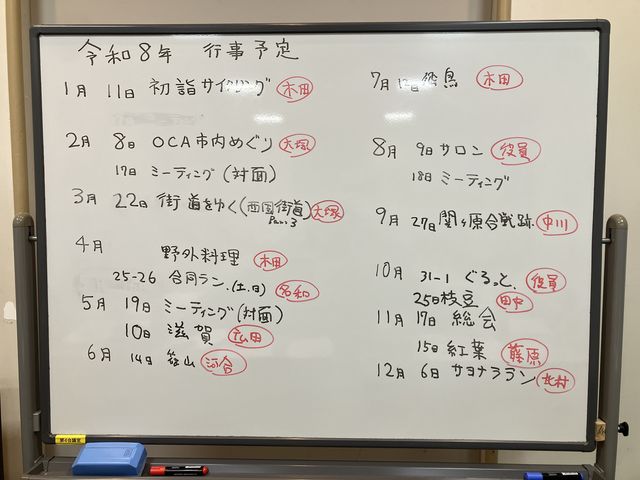 令和8年 行事予定
1月 11日 初詣サイクリング 木田
2月 8日 OCA市内めぐり 大塚
17日 ミーティング(対面)
3月 22日 街道をゆく(西国街道) 大塚
Part 3
4月 野外料理 木田
25-26 合同ラン.(土.日) 名和
5月 19日 ミーティング(対面)
10日 滋賀 広田
6月 14日 篠山 河合
7月 12日 飛鳥 木田
8月 9日 サロン 役員
18日 ミーティング
9月 27日 関ヶ原合戦跡 中川
10月 31-1 ぐるっと. 役員
25日 枝豆 田中
11月 17日 総会
15日 紅葉 藤原
12月 6日 サヨナララン 北村
第6会議室